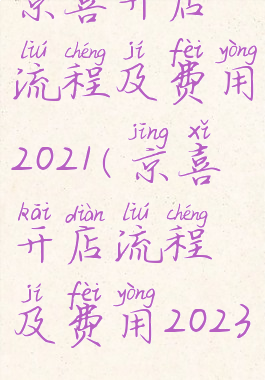 京喜开店
liú chéng jí fèi yòng
流程及费用
jīng xǐ
2021(京喜
kāi diàn liú chéng
开店流程
jí fèi yòng
及费用2023